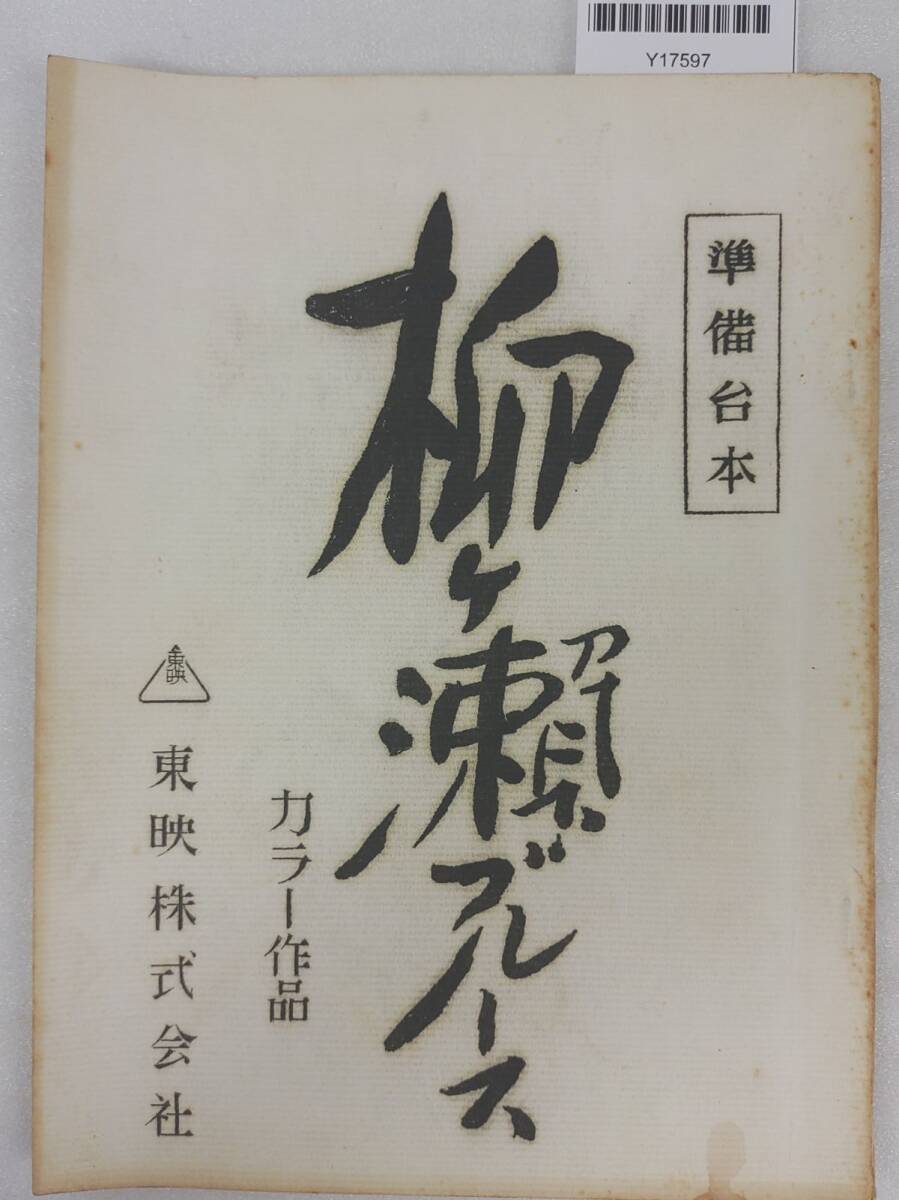 Y17597
準備台本
柳ヶ瀬ブルース
カラー作品
東映
東映株式会社